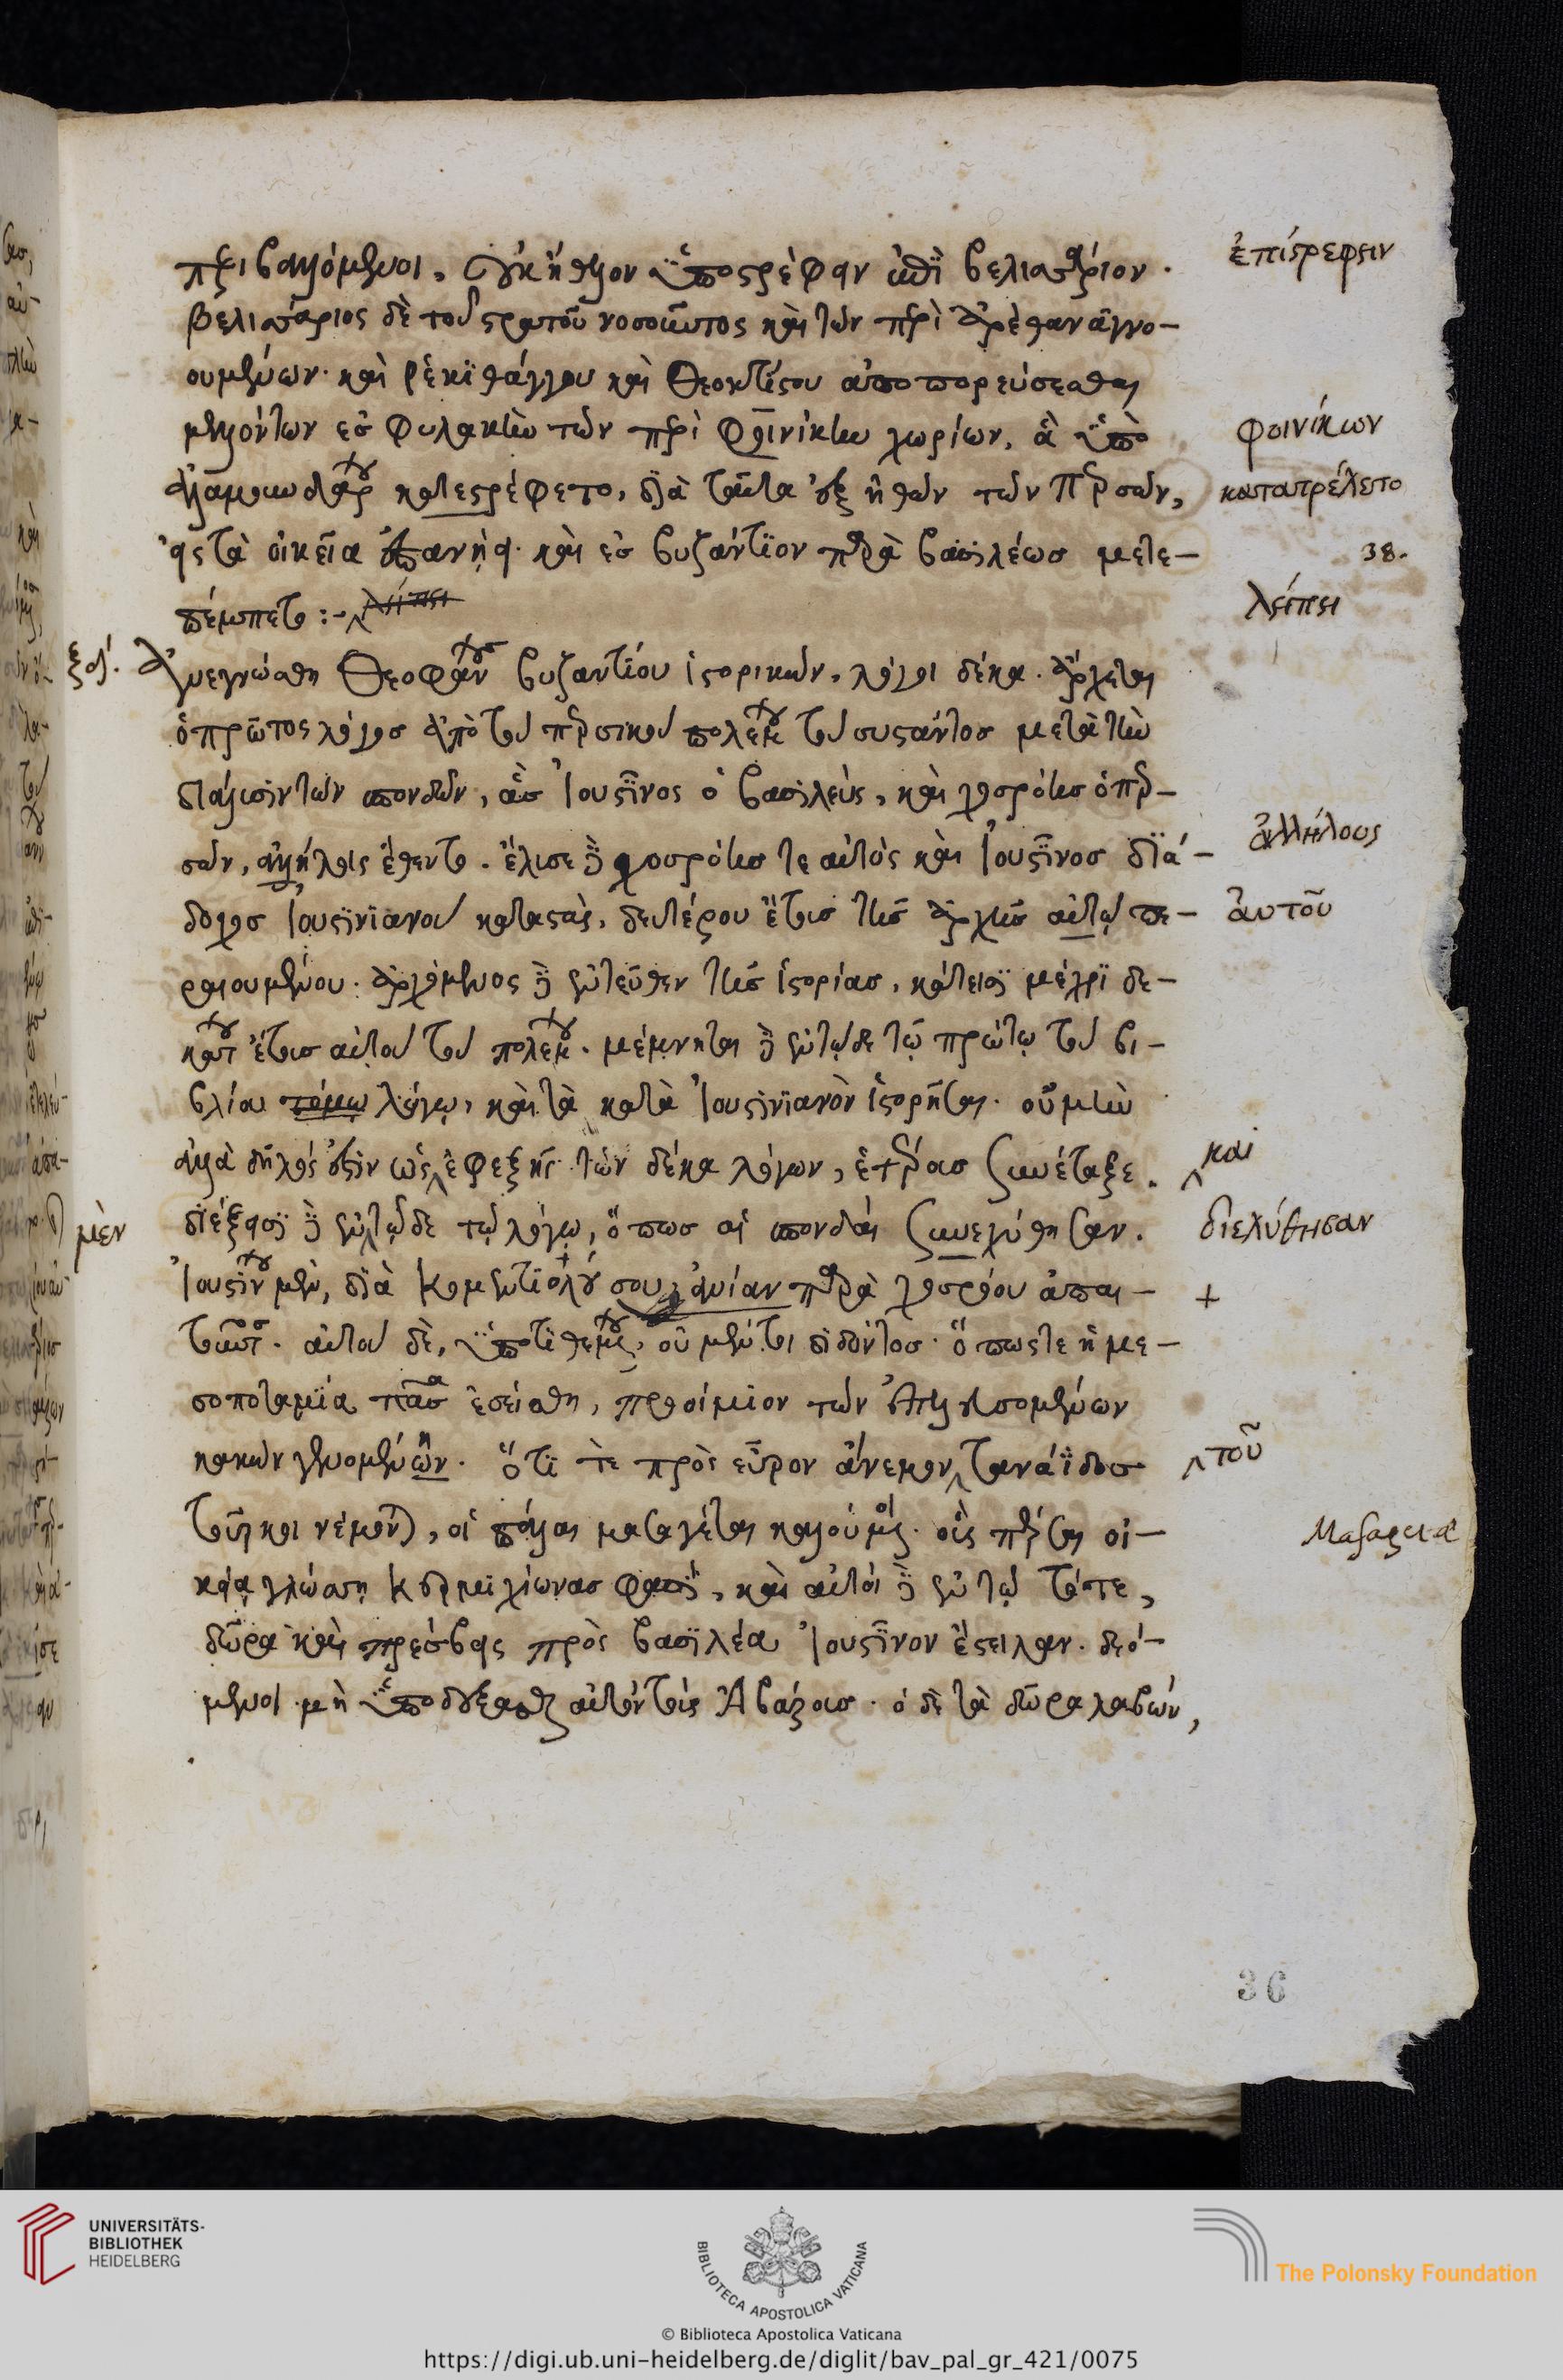 περιβαλλόμενοι, οὐκ ἤθελον ὑποστρέφειν ἐπὶ βελισάριον. ἐπίστρεφειν
βελισάριος δὲ τοῦ στρατοῦ νοσοῦντος καὶ τῶν περὶ ἀρέθαν ἀγνο-
ουμένων· καὶ ῥεκιθάγγου καὶ θεοκτίστου ἀποπορεύσεσθαι
μελλόντων εἰς φυλακὴν τῶν περὶ φοινίκην χωρίων, ἃ ὑπὸ φοινίκων
ἀλαμουνδάρου κατεστρέφετο, διὰ ταῦτα ἐξ ἠθῶν τῶν περσῶν, κατατρέχετο
εἰς τὰ οἰκεῖα ἐπανῄει· καὶ εἰς βυζάντιον παρὰ βασιλέως μετε- 38.
πέμπετο :- λείπει λείπει
ξδ΄. ἀνεγνώσθη θεοφάνους βυζαντίου ἱστορικῶν, λόγοι δέκα. ἄρχεται
ὁ πρῶτος λόγος ἀπὸ τοῦ περσικοῦ πολέμου τοῦ συστάντος μετὰ τὴν
διάλυσιν τῶν σπονδῶν, ἃς Ἰουστῖνος ὁ βασιλεὺς, καὶ χοσρόης ὁ περ-
σῶν, ἀλλήλοις ἔθεντο. ἔλυσε δὲ χοσρόης τε αὐτὸς καὶ Ἰουστῖνος διά- ἀλλήλους
δοχος Ἰουστινιανοῦ καταστάς, δευτέρου ἔτους τῆς ἀρχῆς αὐτῷ πε- αὐτοῦ
ραιουμένου. ἀρχόμενος δὲ ἐντεῦθεν τῆς ἱστορίας, κάτεισι μέχρι δε-
κάτου ἔτους αὐτοῦ τοῦ πολέμου. μέμνηται δὲ ἐν τῷδε τῷ πρώτῳ τοῦ βι-
βλίου τόμῳ λόγῳ, καὶ τὰ κατὰ Ἰουστινιανὸν ἱστορῆσαι. οὐ μὴν
ἀλλὰ δῆλός ἐστιν ὡς ἐφεξῆς τῶν δέκα λόγων, ἑτέρους συνέταξε. καὶ
μὲν διέξεισι δὲ ἐν τῷδε τῷ λόγῳ, ὅπως αἱ σπονδαὶ συνελύθησαν. διελύθησαν
Ἰουστίνου μὲν, διὰ κομεντιόλου σουανίαν παρὰ χοσρόου ἀπαι- +
τοῦντος. αὐτοῦ δὲ, ὑποτιθεμένου, οὐ μέντοι διδόντος· ὅπως τε ἡ με-
σοποταμία πᾶσα ἐσείσθη, προοίμιον τῶν ἀπελευσομένων
κακῶν γενομένην. ὅτι τε πρὸς εὖρον ἄνεμον τανάϊδος τοῦ
τοῦρκοι νέμονται, οἱ πάλαι μασαγέται καλούμενοι. οὓς πέρσαι οἰ- Μασαγετα
κείᾳ γλώσσῃ κερμιχίωνας φασί, καὶ αὐτοὶ δὲ ἐν τῷ τότε,
δῶρα καὶ πρέσβεις πρὸς βασιλέα Ἰουστῖνον ἔστειλαν. δεό-
μενοι μὴ ὑποδέξασθαι αὐτὸν τοὺς Ἀβάρους. ὁ δὲ τὰ δῶρα λαβών,
36
UNIVERSITÄTS-
BIBLIOTHEK
HEIDELBERG
BIBLIOTECA APOSTOLICA VATICANA
The Polonsky Foundation
© Biblioteca Apostolica Vaticana
https://digi.ub.uni-heidelberg.de/diglit/bav_pal_gr_421/0075